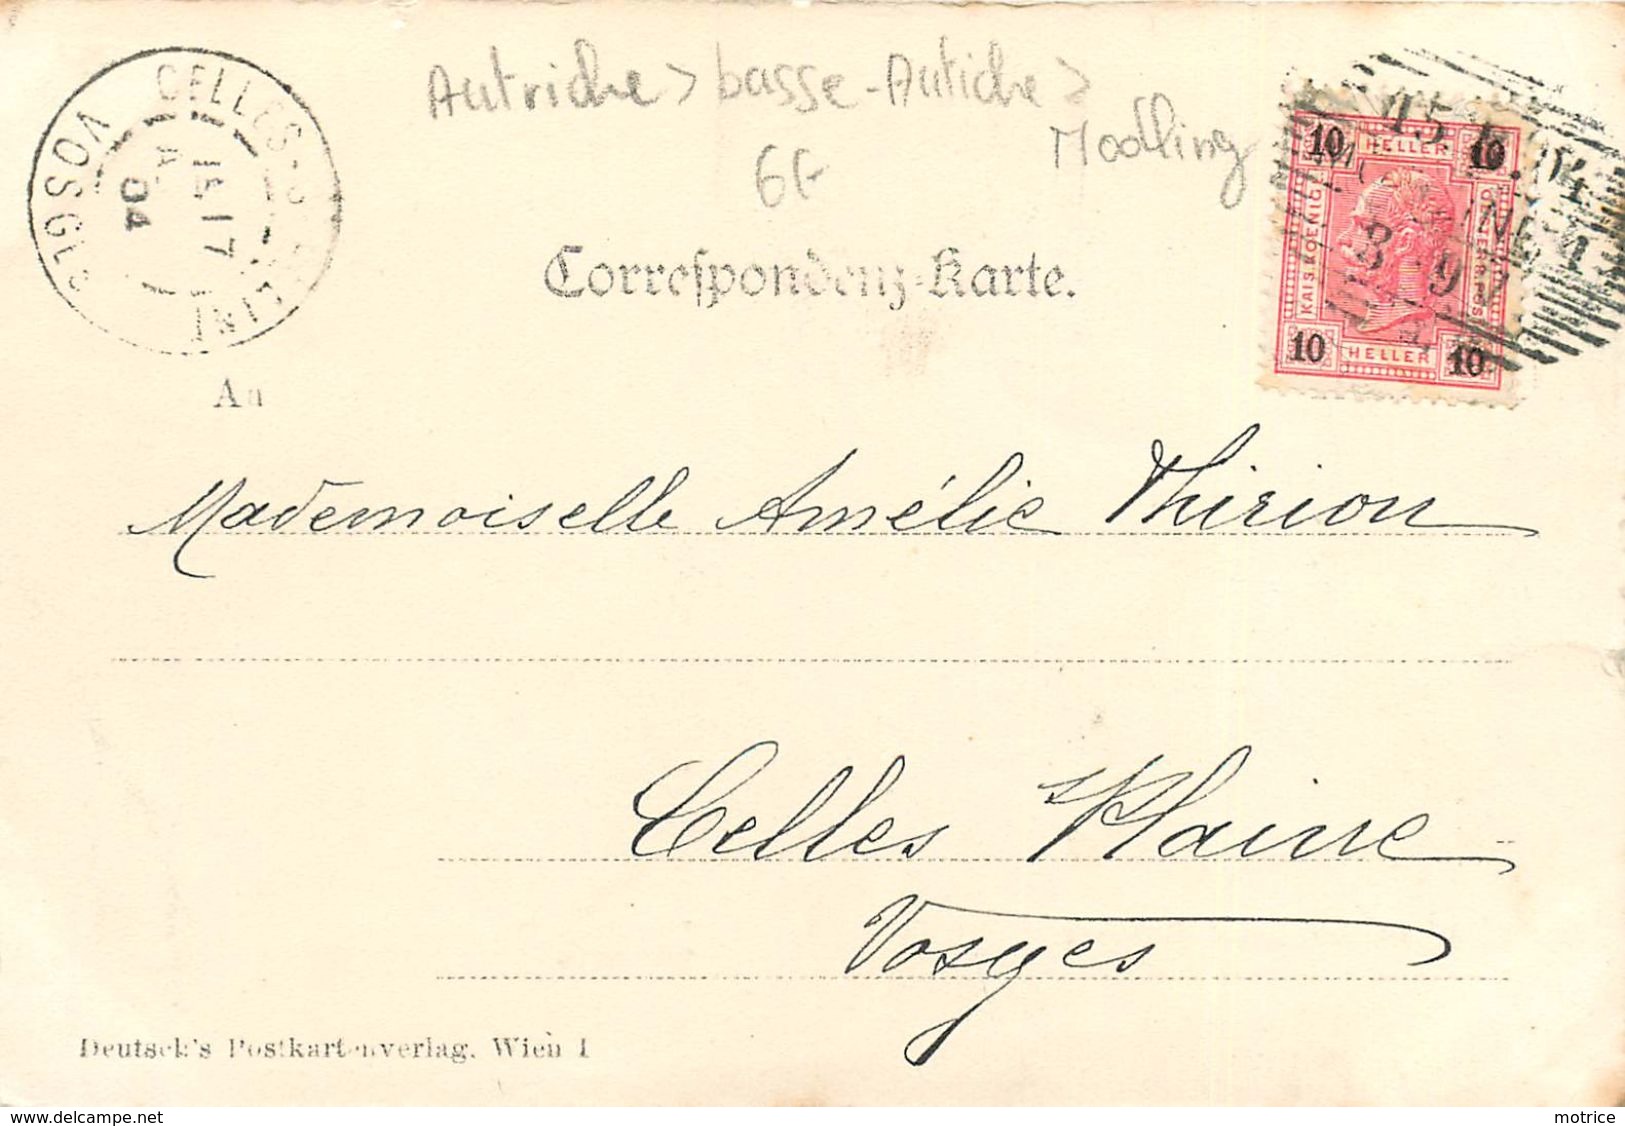 Autriche > basse-Autiche >
Modling
6E
CELLES-S-PLAINE
VOSGES
15 17
04
15.
.04
3-9
10 HELLER 10
KAIS. KOENIG.
OESTERR. POST
10 HELLER 10
Correspondenz-Karte.
An
Mademoiselle Amélie Thirion
Celles s/Plaine
Vosges
Deutsch's Postkartenverlag, Wien I
delcampe.net
motrice